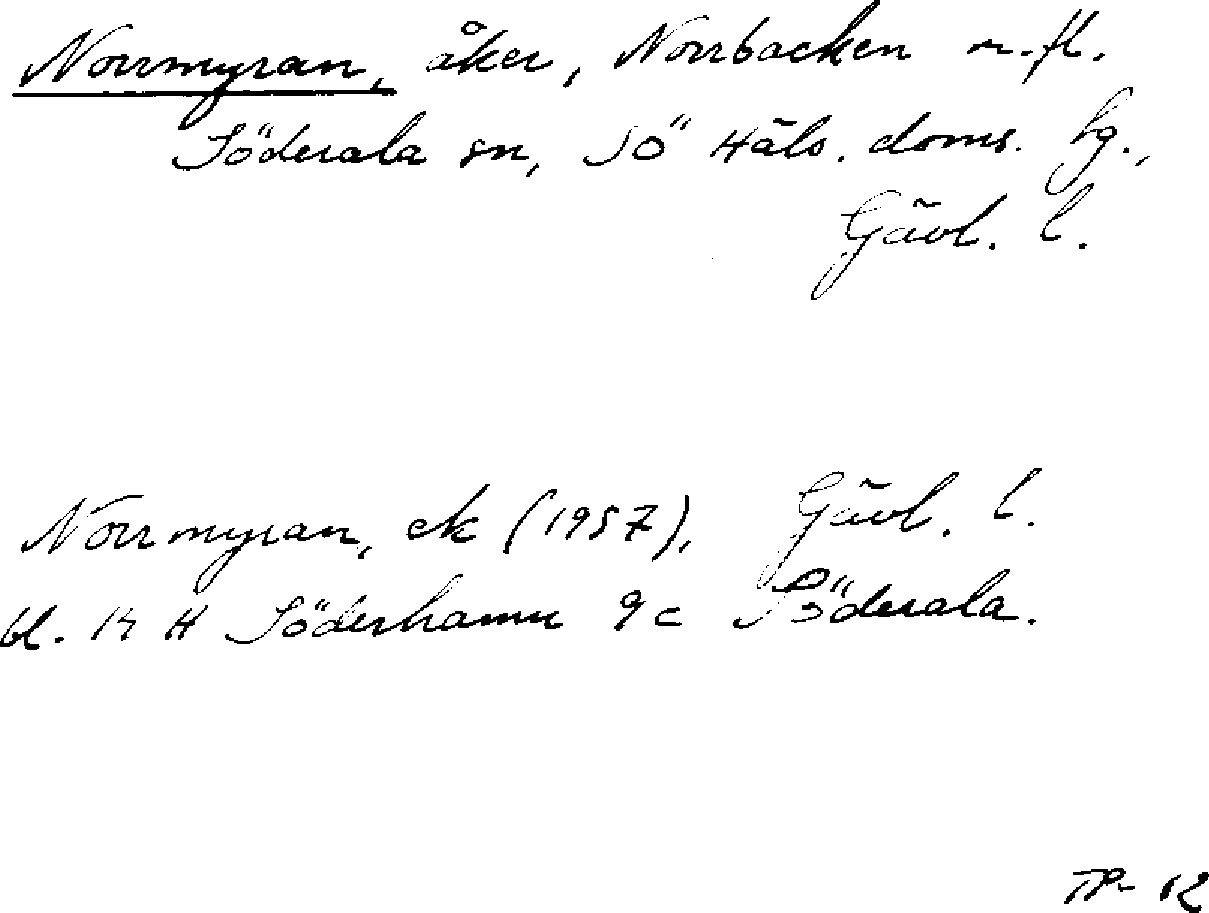 Norrmyran, åker, Norrbacken m.fl.
Söderala sn, Sö Häls. doms. tg.,
Gävl. l.
Norrmyran, ek (1957),
Gävl. l.
bl. 14 H Söderhamn 9c Söderala.
TP- 12